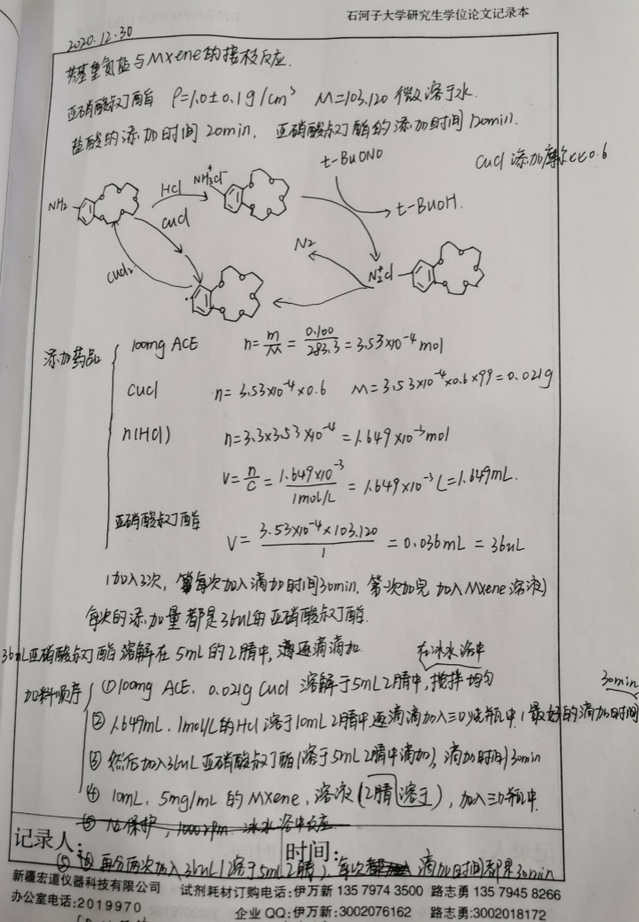 石河子大学研究生学位论文记录本
2020.12.30
苯基重氮盐与Mxene的接枝反应.
亚硝酸叔丁酯 ρ=1.0±0.1g/cm³ M=103.120 微溶于水.
盐酸的添加时间20min, 亚硝酸叔丁酯的添加时间120min.
t-BuONO
CuCl 添加摩尔<<0.6
HCl
NH₃⁺Cl⁻
NH₂
CuCl
t-BuOH.
N₂
CuCl₂
N₂⁺Cl
添加药品
100mg ACE n=m/M=0.100/283.3=3.53×10⁻⁴mol
CuCl n=3.53×10⁻⁴×0.6 M=3.53×10⁻⁴×0.6×99=0.021g
n(HCl) n=3.3×3.53×10⁻⁴=1.649×10⁻³mol
V=n/c=1.649×10⁻³/1mol/L=1.649×10⁻³L=1.649mL.
亚硝酸叔丁酯
V=3.53×10⁻⁴×103.120/1=0.036mL=36uL
(加入3次, 每次加入滴加时间30min, 第次加完加入Mxene溶液)
每次的添加量都是36uL的亚硝酸叔丁酯.
36uL亚硝酸叔丁酯溶解在5mL的乙腈中, 逐滴滴加.
在冰水浴中
加料顺序
①100mg ACE, 0.021g CuCl 溶解于5mL乙腈中, 搅拌均匀
30min
②1.649mL, 1mol/L的HCl溶于10mL乙腈中逐滴滴加入三口烧瓶中(最好的滴加时间
③然后加入36uL亚硝酸叔丁酯(溶于5mL乙腈中滴加), 滴加时间30min
④10mL, 5mg/mL的Mxene, 溶液(乙腈溶于), 加入三口瓶中.
⑤N₂保护, 1000rpm, 冰水浴中反应
记录人:
时间:
⑤再分两次加入36uL(溶于5mL乙腈), 每次滴加时间都是30min
新疆宏道仪器科技有限公司 试剂耗材订购电话:伊万新 135 7974 3500 路志勇 135 7945 8266
办公室电话:2019970
企业 QQ:伊万新:3002076162 路志勇:3002018172